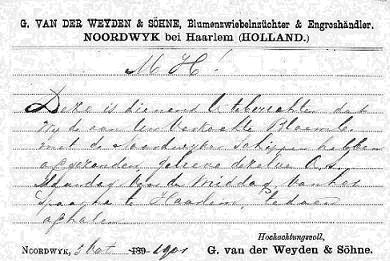 G. VAN DER WEYDEN & SÖHNE, Blumenzwiebelnzüchter & Engroshändler.
NOORDWYK bei Haarlem (HOLLAND.)
M H!
Deze is dienend U te berichten dat
wy de aan ten verkochte Bloemb.
met de Noordwyker Schipper hebben
afgezonden, gelieve dezelve a.s.
Maandag van den Middag van het
Spaarne te Haarlem, te doen
afhalen
Hochachtungsvoll,
NOORDWYK, 5 Oct 189 1901 G. van der Weyden & Söhne.